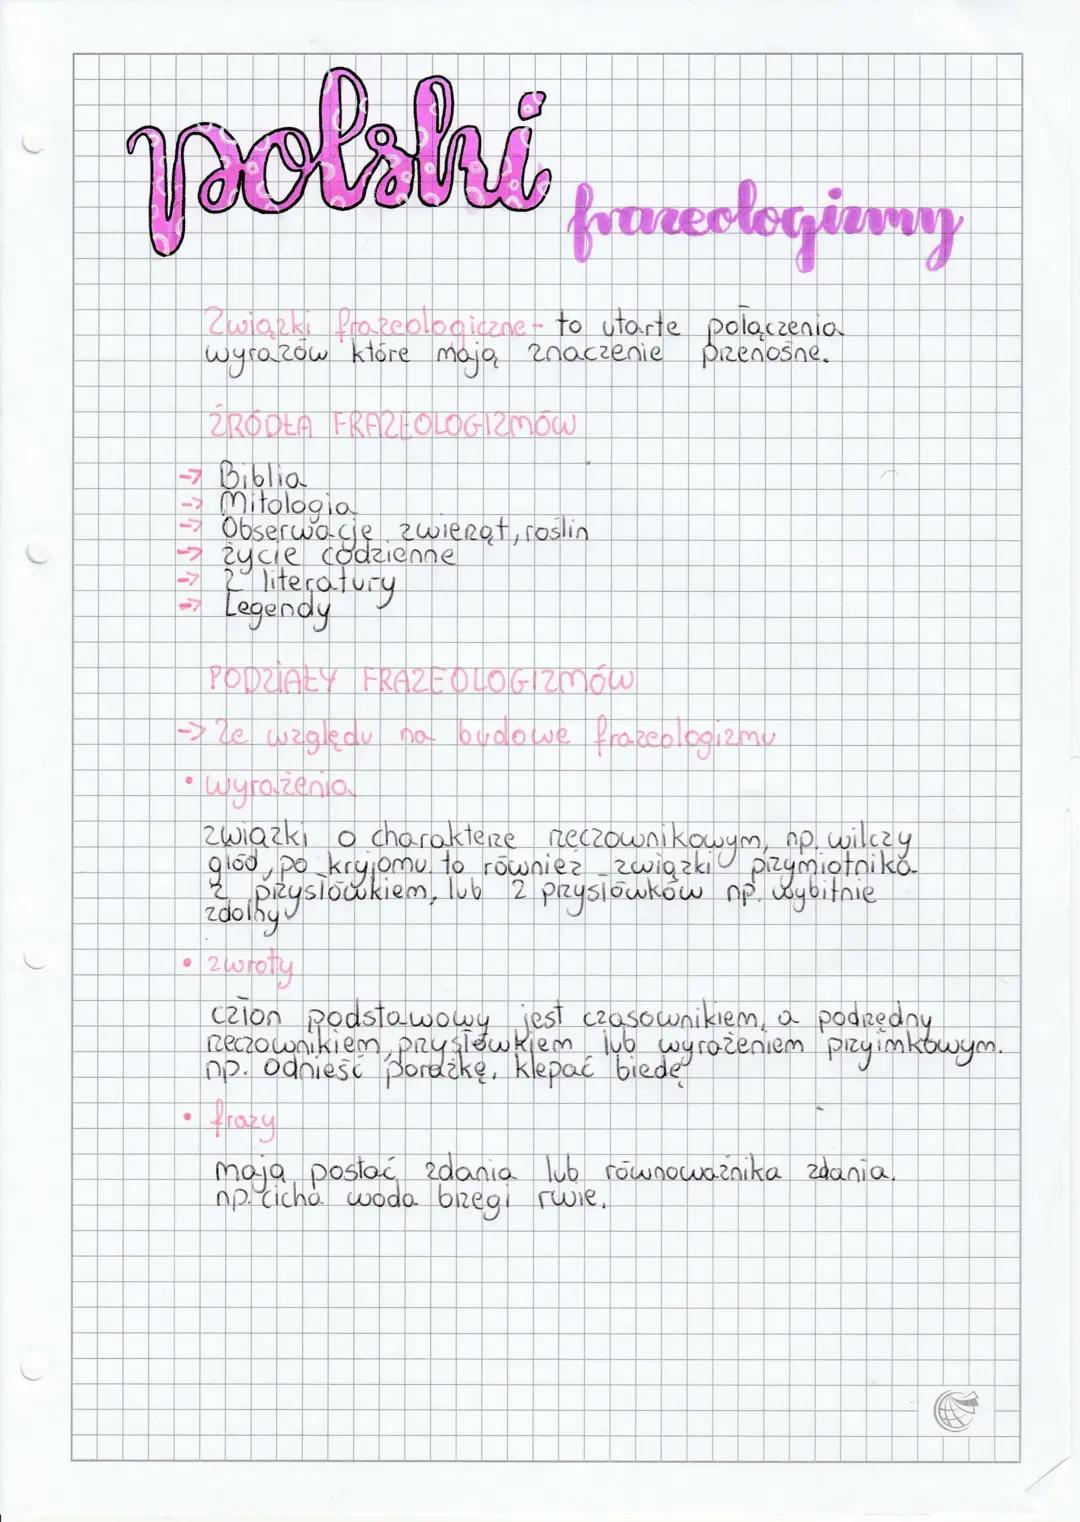 polski
frazeologizmy
Związki frazeologiczne - to utarte połączenia
wyrazów które mają znaczenie przenośne.
ŹRÓDŁA FRAZEOLOGIZMÓW
-> Biblia
-> Mitologia
-> Obserwacje zwierząt, roślin
-> życie codzienne
-> Z literatury
-> Legendy
PODZIAŁY FRAZEOLOGIZMÓW
-> Ze względu na budowe frazeologizmu
• wyrażenia
związki o charakterze rzeczownikowym, np. wilczy
głód, po kryjomu. to również związki przymiotnika
z przysłówkiem, lub 2 przysłówków np. wybitnie
zdolny
• zwroty
człon podstawowy jest czasownikiem, a podrzędny
rzeczownikiem, przysłówkiem lub wyrażeniem przyimkowym.
np. Odnieść porażkę, klepać biedę
• frazy
mają postać zdania lub równoważnika zdania.
np. cicha woda brzegi rwie.